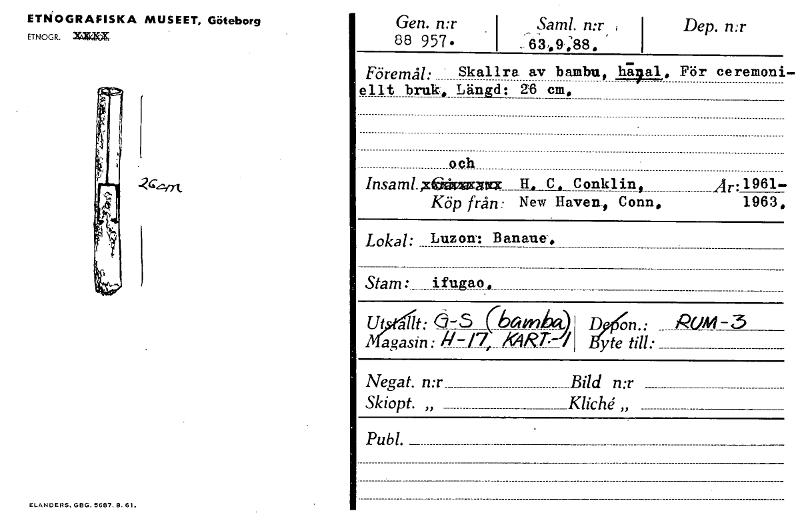 ETNOGRAFISKA MUSEET, Göteborg
ETNOGR.
26cm
ELANDERS, GBG. 5687. 8. 61.
Gen. n:r Saml. n:r Dep. n:r
88 957. 63.9.88.
Föremål: Skallra av bambu, hānal. För ceremoni-
ellt bruk. Längd: 26 cm.
och
Insaml. H. C. Conklin, År: 1961-
Köp från: New Haven, Conn. 1963.
Lokal: Luzon: Banaue.
Stam: ifugao.
Utställt: G-S (bamba) Depon.: RUM-3
Magasin: H-17, KART.-1 Byte till:
Negat. n:r Bild n:r
Skiopt. „ Kliché „
Publ.